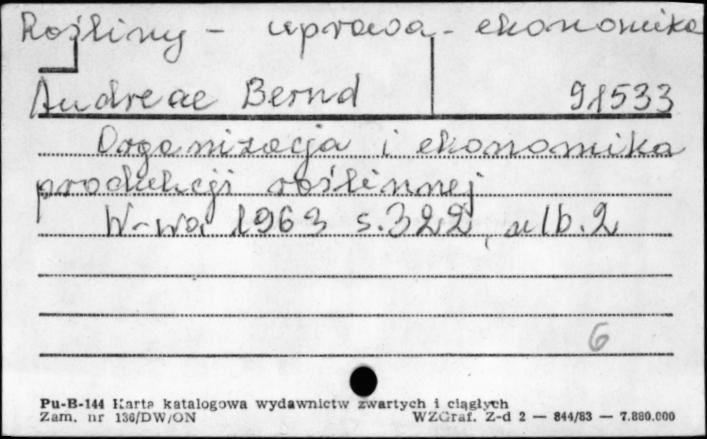 Rośliny - uprawa - ekonomika
Andreae Bernd 91533
Organizacja i ekonomika
produkcji roślinnej
W-wa 1963 s. 322, nlb. 2
6
Pu-B-144 Karta katalogowa wydawnictw zwartych i ciągłych
Zam. nr 136/DW/ON WZGraf. Z-d 2 — 844/83 — 7.880.000